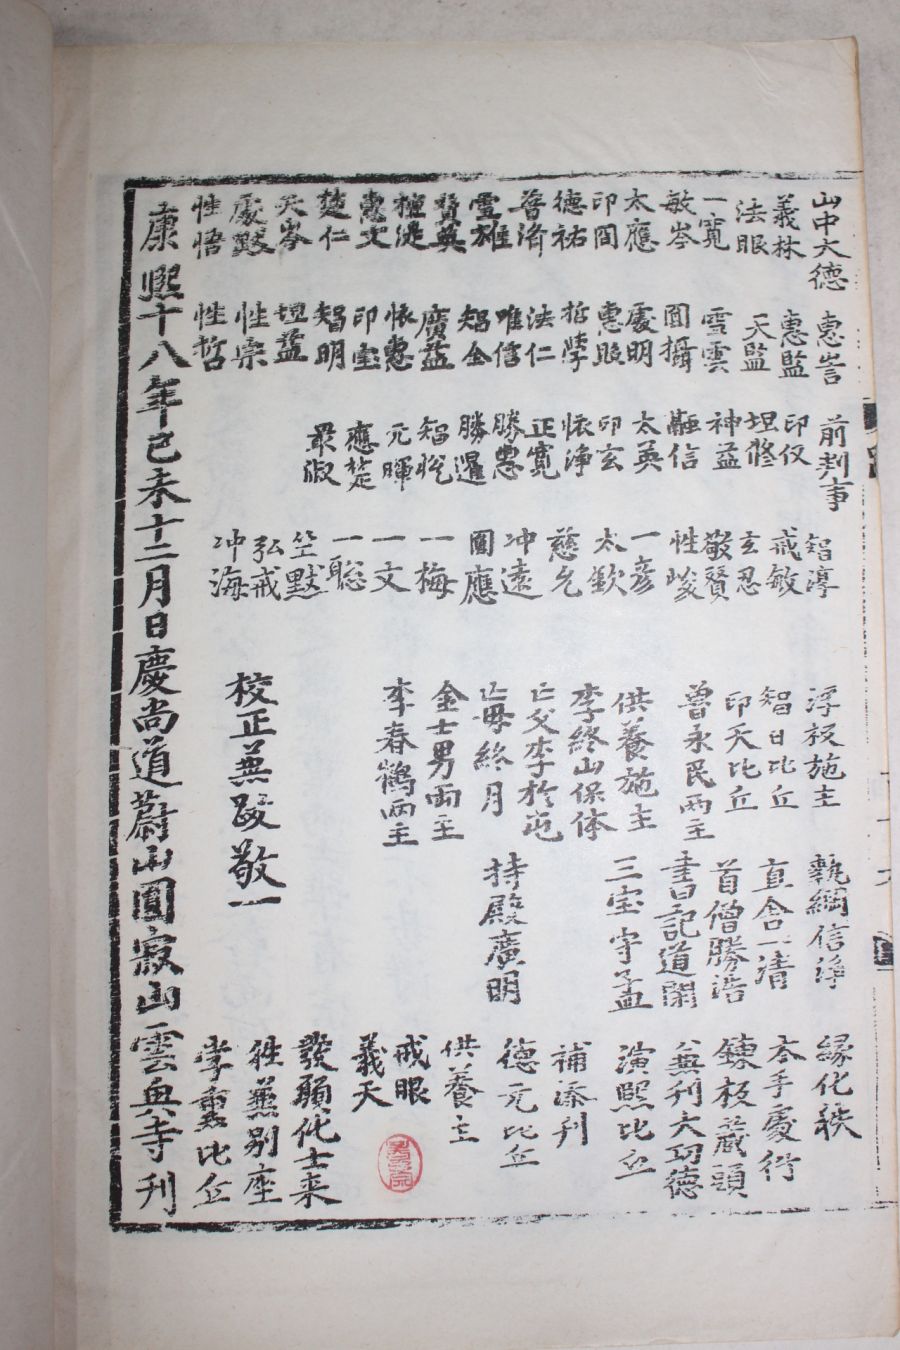 山中大德
義林
法眼
一寬
敏岑
太應
印閻
德祐
普濟
雪雄
贊英
惠文
楚仁
天岑
處默
性悟
惠訔
惠監
天監
雪雲
圓攝
處明
惠照
法仁
唯信
智全
廣益
恢惠
印宝
智明
坦益
性崇
性哲
前判事
坦修
神益
融信
太英
印玄
恢淨
正寬
勝惠
勝暹
智悅
元暉
應楚
最淑
智淳
戒敏
玄忍
敬賢
性峻
一彦
太欽
慈允
冲遠
圓應
一梅
一文
一聡
竺默
弘戒
冲海
浮板施主
智日比丘
印天比丘
曺永民兩主
供養施主
李終山保体
亡父李於屯
亡母終月
金士男兩主
李春鶴兩主
校正兼跋敬一
執綱信淨
直舍一清
首僧勝浩
書記道閑
三宝守孟
持殿廣明
緣化秩
夲手處行
鍊板藏頭
兼刊大功德
演熙比丘
補添刊
德元比丘
供養主
戒眼
義天
發願化士来
牲兼別座
比丘
康熙十八年己未十二月日慶尚道蔚山圓寂山雲興寺刊